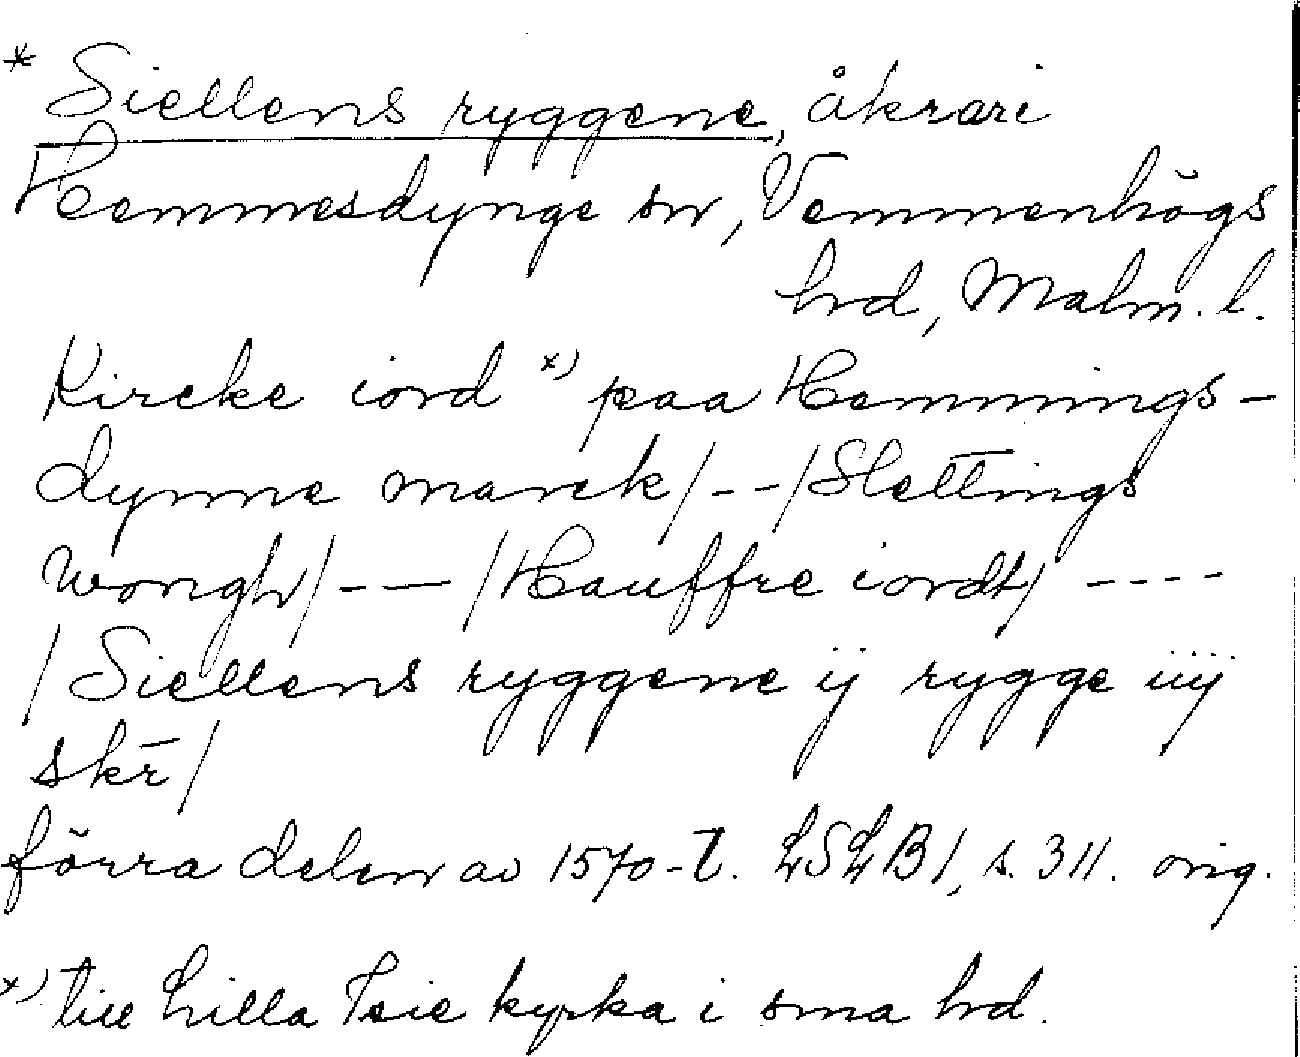 * Siellens ryggene, åkrar i
Hemmesdynge sn, Vemmenhögs
hrd, Malm. l.
Kircke iord *) paa Hemmings-
dynne marck/--/Slettings
Wongh/---/Hauffre iordt/ ----
/Siellens ryggene ij rygge iiij
skr̄/
förra delen av 1570-t. LSLB1, s. 311. orig.
*) till Lilla Isie kyrka i sma hrd.